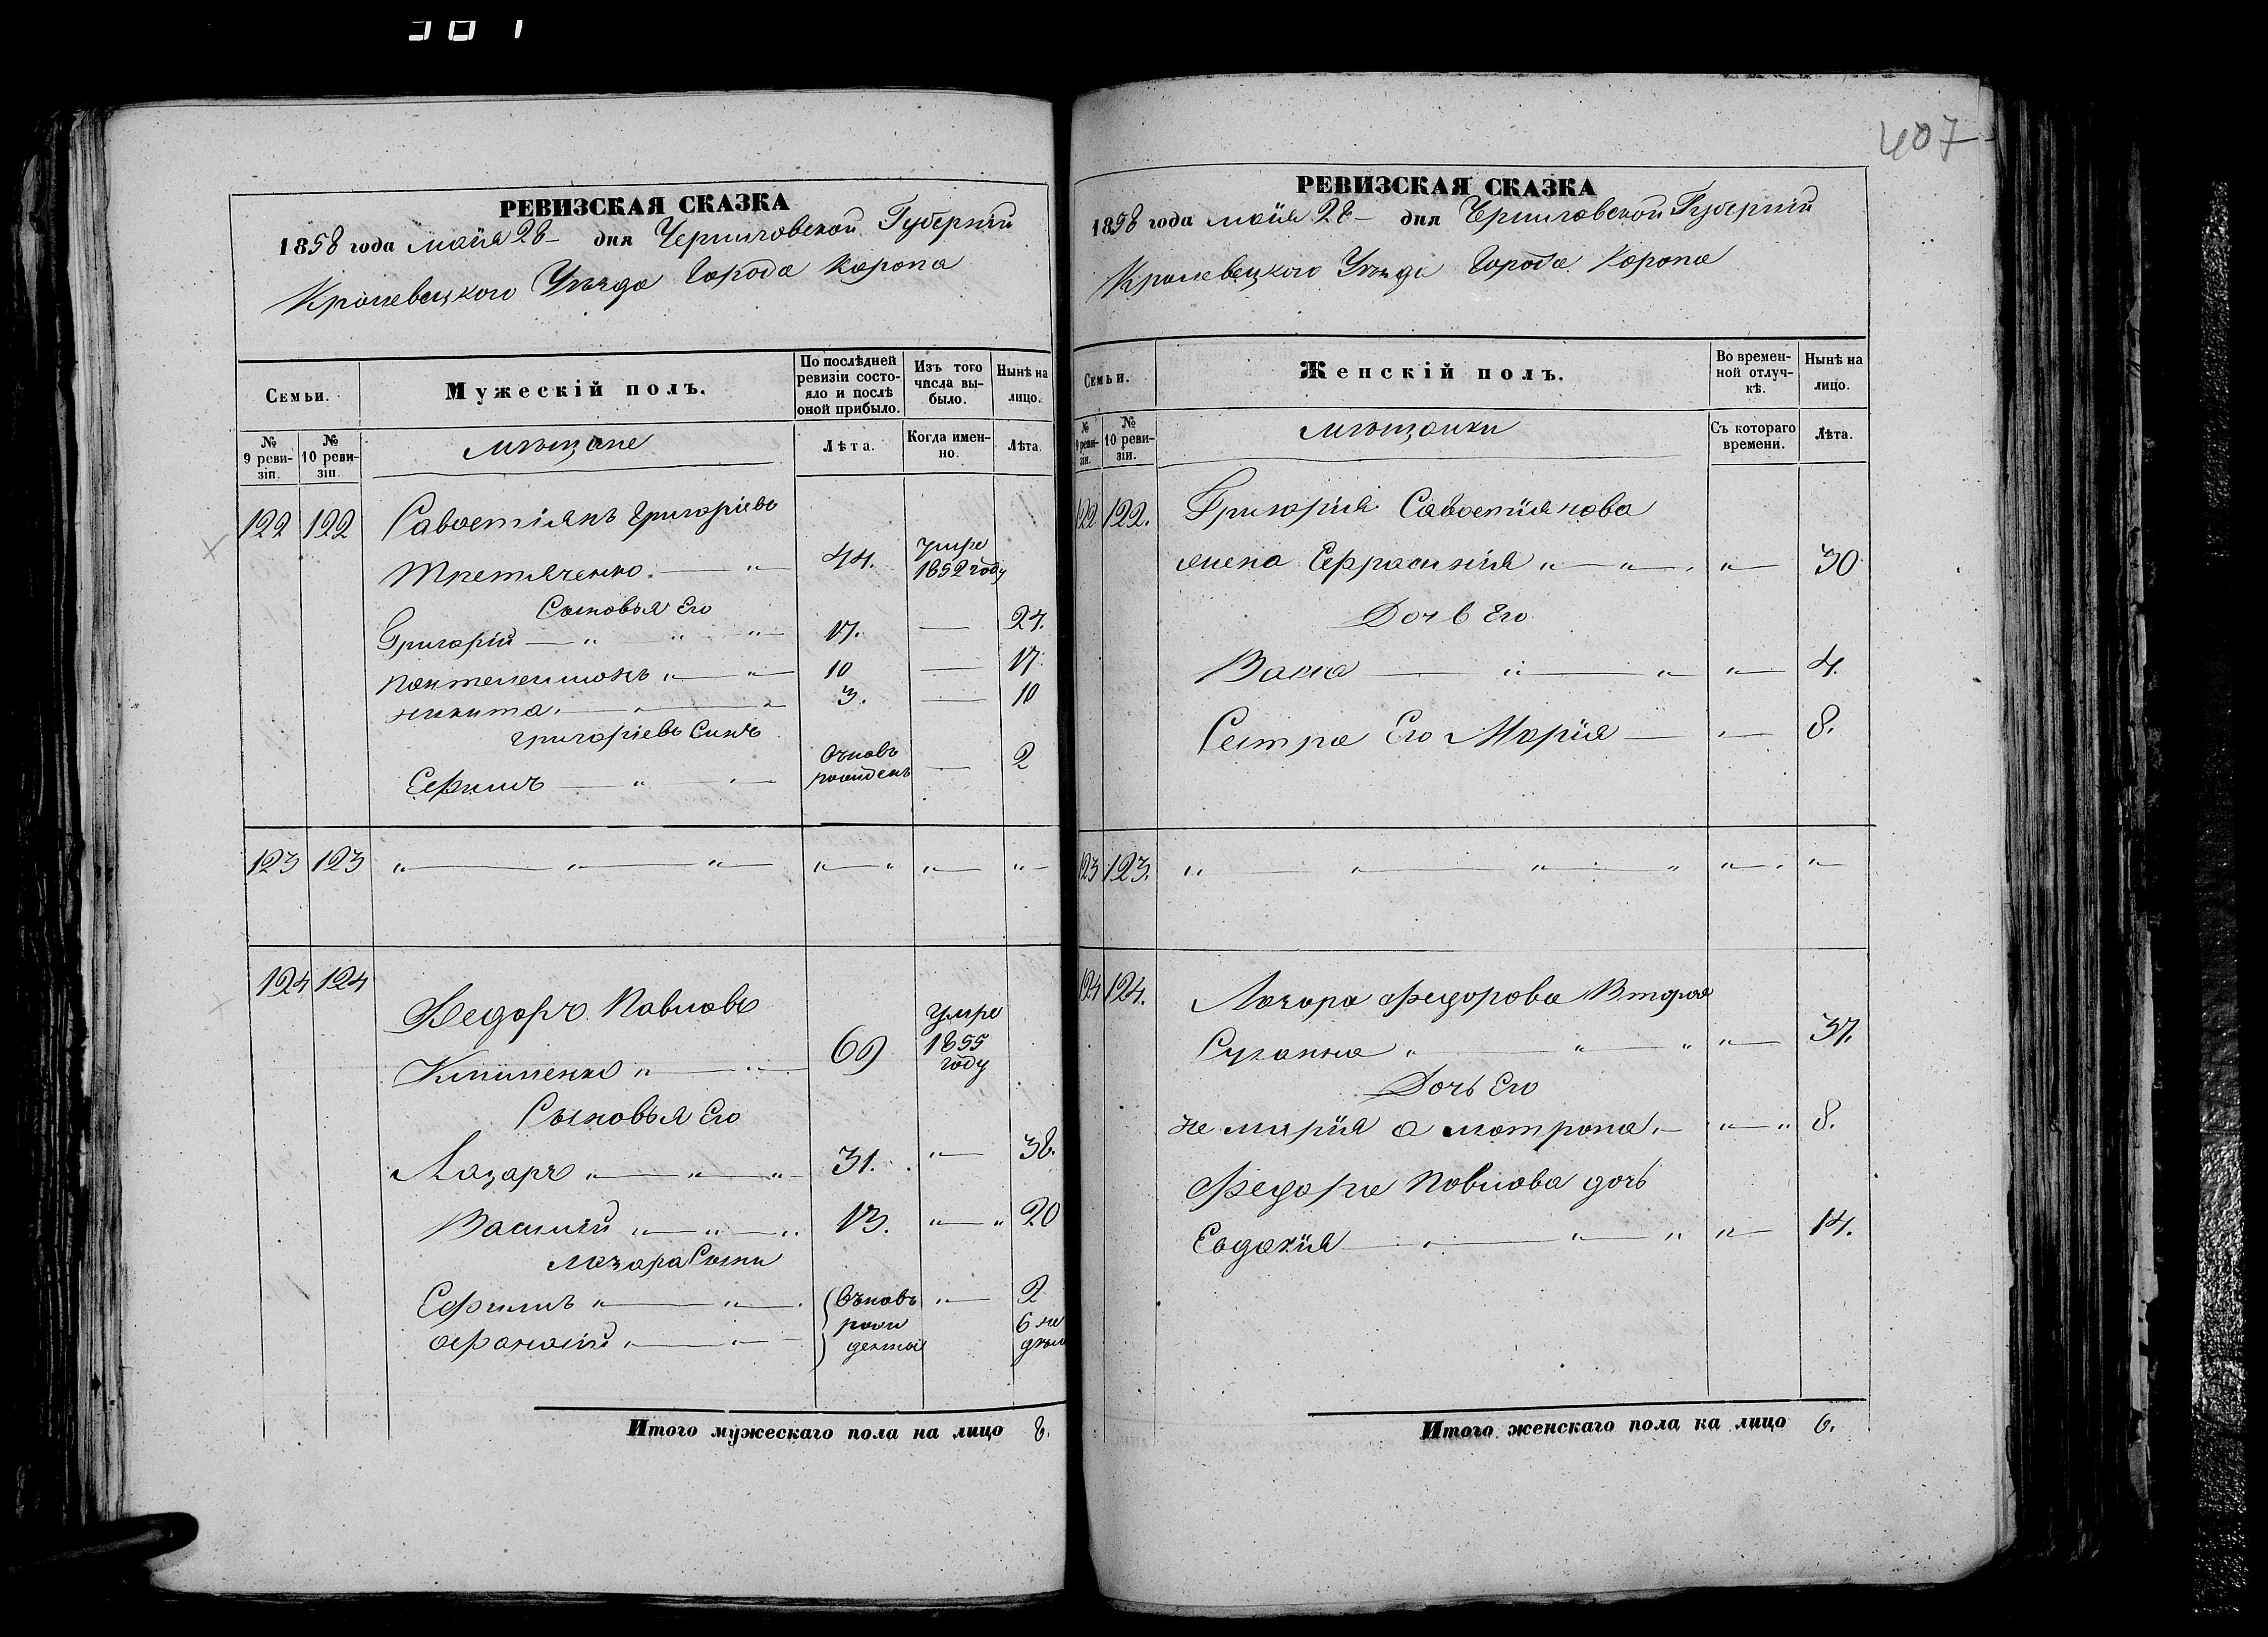 407
РЕВИЗСКАЯ СКАЗКА
1858 года маія 28 дня Черниговской Губерніи
Кролевецкого Уѣзда Города Коропа
Семьи.
Мужескій полъ.
По послѣдней ревизіи состояло и послѣ оной прибыло.
Изъ того числа выбыло.
Нынѣ на лицо.
№ 9 ревизіи.
№ 10 ревизіи.
мѣщане
Лѣта.
Когда именно.
Лѣта.
122 122 Савостіянъ Григоріевъ
Третяченко 44. умре 1852 году
Сыновья Его
Григорій 17. 24.
Пантелеимонъ 10 17.
Никита 3. 10
Григоріевъ Синъ
Ефимъ вновь рожденъ 2
123 123
124 124 Федоръ Павловъ
Клименко 69 умре 1855 году
Сыновья Его
Лазаръ 31. 38.
Василій 13. 20
Лазара Сыны
Ефимъ 2
Афанасій 6 не
Итого мужескаго пола на лицо 8.
РЕВИЗСКАЯ СКАЗКА
1858 года маія 28 дня Черниговской Губерніи
Кролевецкого Уѣзда Города Коропа
Семьи.
Женскій полъ.
Во временной отлучкѣ.
Нынѣ на лицо.
№ 9 ревизіи.
№ 10 ревизіи.
мѣщанки
Съ котораго времени.
Лѣта.
122 122. Григорія Савостіянова
жена Ефросинія 30
Дочь Его
Васса 4.
Сестра Его Марія 8.
123 123.
124 124. Лазара Федорова Вторая
Сусанна 37.
Дочь Его
не марія а матрона 8.
Федора Павлова дочь
Евдокія 14.
Итого женскаго пола на лицо 6.